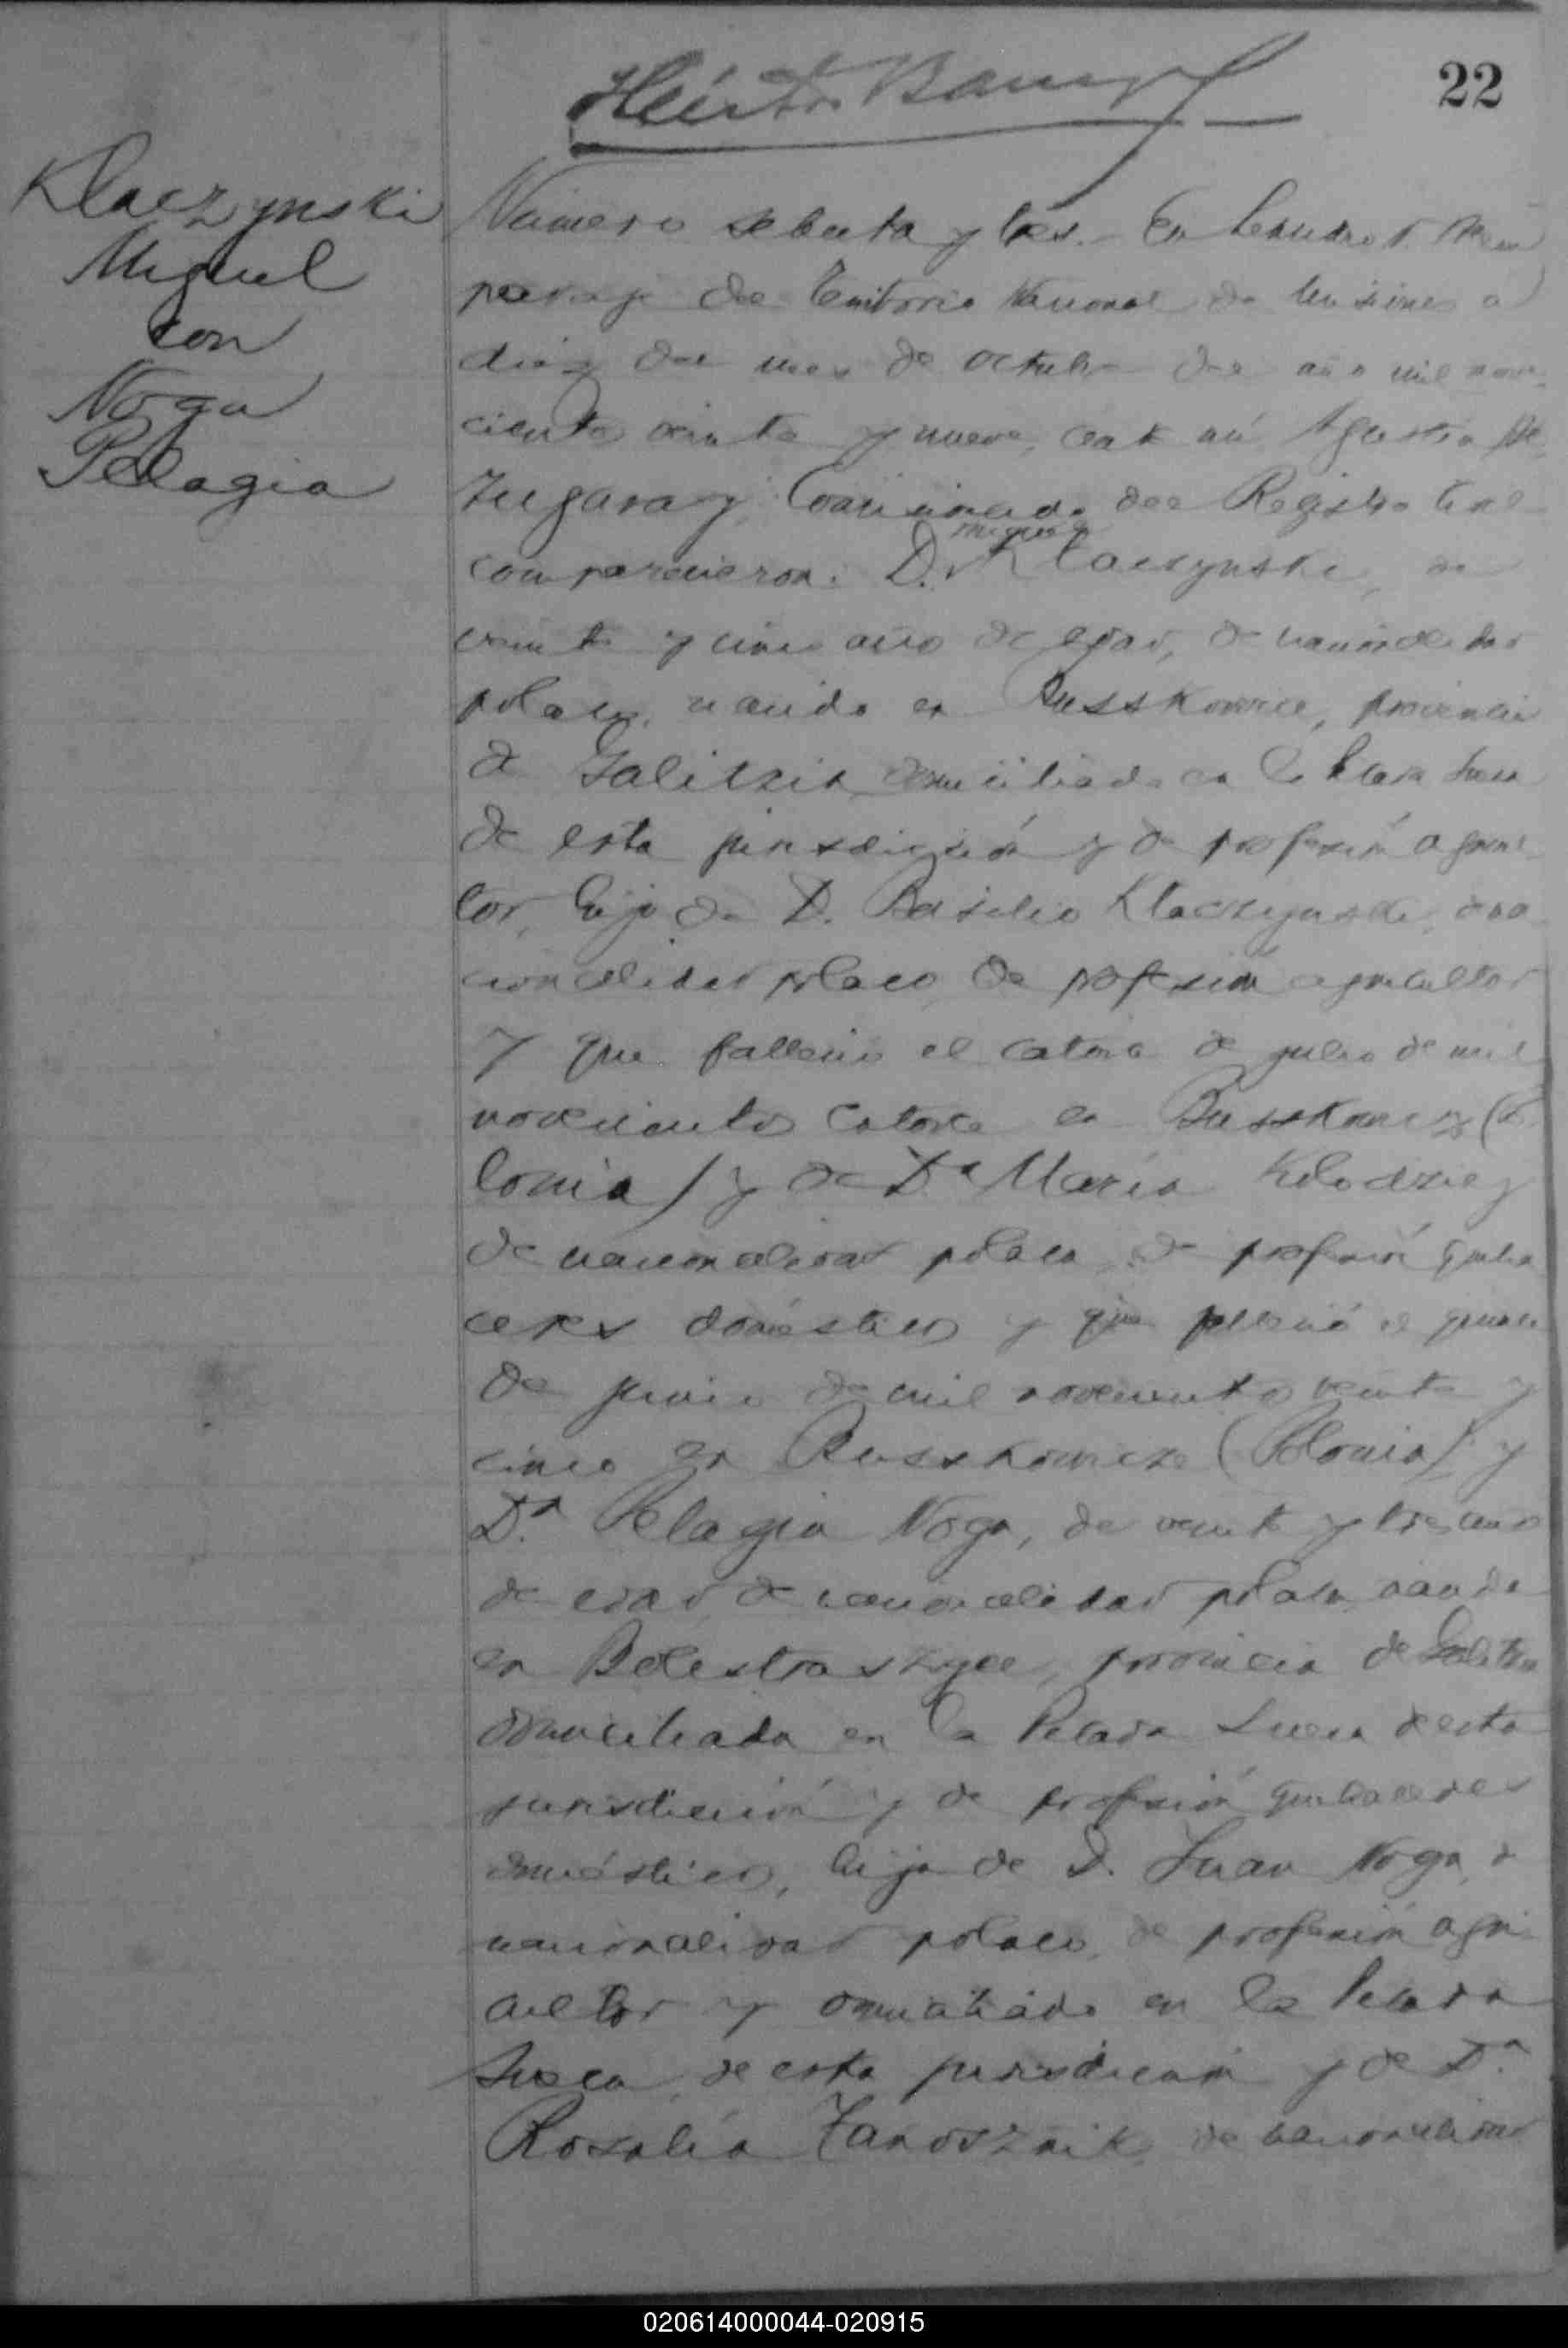 22
Klaczynski
Miguel
con
Noga
Pelagia
Número setenta y tres. En Leandro N. Alem
paraje del Territorio Nacional de Misiones a
diez del mes de octubre del año mil nove-
cientos veinte y nueve, ante mí Agustín
Comisionado del Registro Civil
comparecieron: D. Miguel Klaczynski, de
veinte y cinco años de edad, de nacionalidad
polaca, nacido en Busskowice, provincia
de Galitzia domiciliado en la Picada Sueca
de esta jurisdicción y de profesión agricul-
tor, hijo de D. Basilio Klaczynski, de na-
cionalidad polaco, de profesión agricultor
y que falleció el catorce de julio de mil
novecientos catorce en Busskowicz (Po-
lonia) y de Da. María Kolodziej
de nacionalidad polaca, de profesión queha-
ceres domésticos y que falleció el quince
de junio de mil novecientos veinte y
cinco en Busskowicze (Polonia) y
Da. Pelagia Noga, de veinte y tres años
de edad, de nacionalidad polaca, nacida
en Bolestraszyce, provincia de Galitzia
domiciliada en la Picada Sueca de esta
jurisdicción y de profesión quehaceres
domésticos, hija de D. Juan Noga, de
nacionalidad polaco, de profesión agri-
cultor y domiciliado en la Picada
Sueca, de esta jurisdicción y de Da.
Rosalía de nacionalidad
020614000044-020915